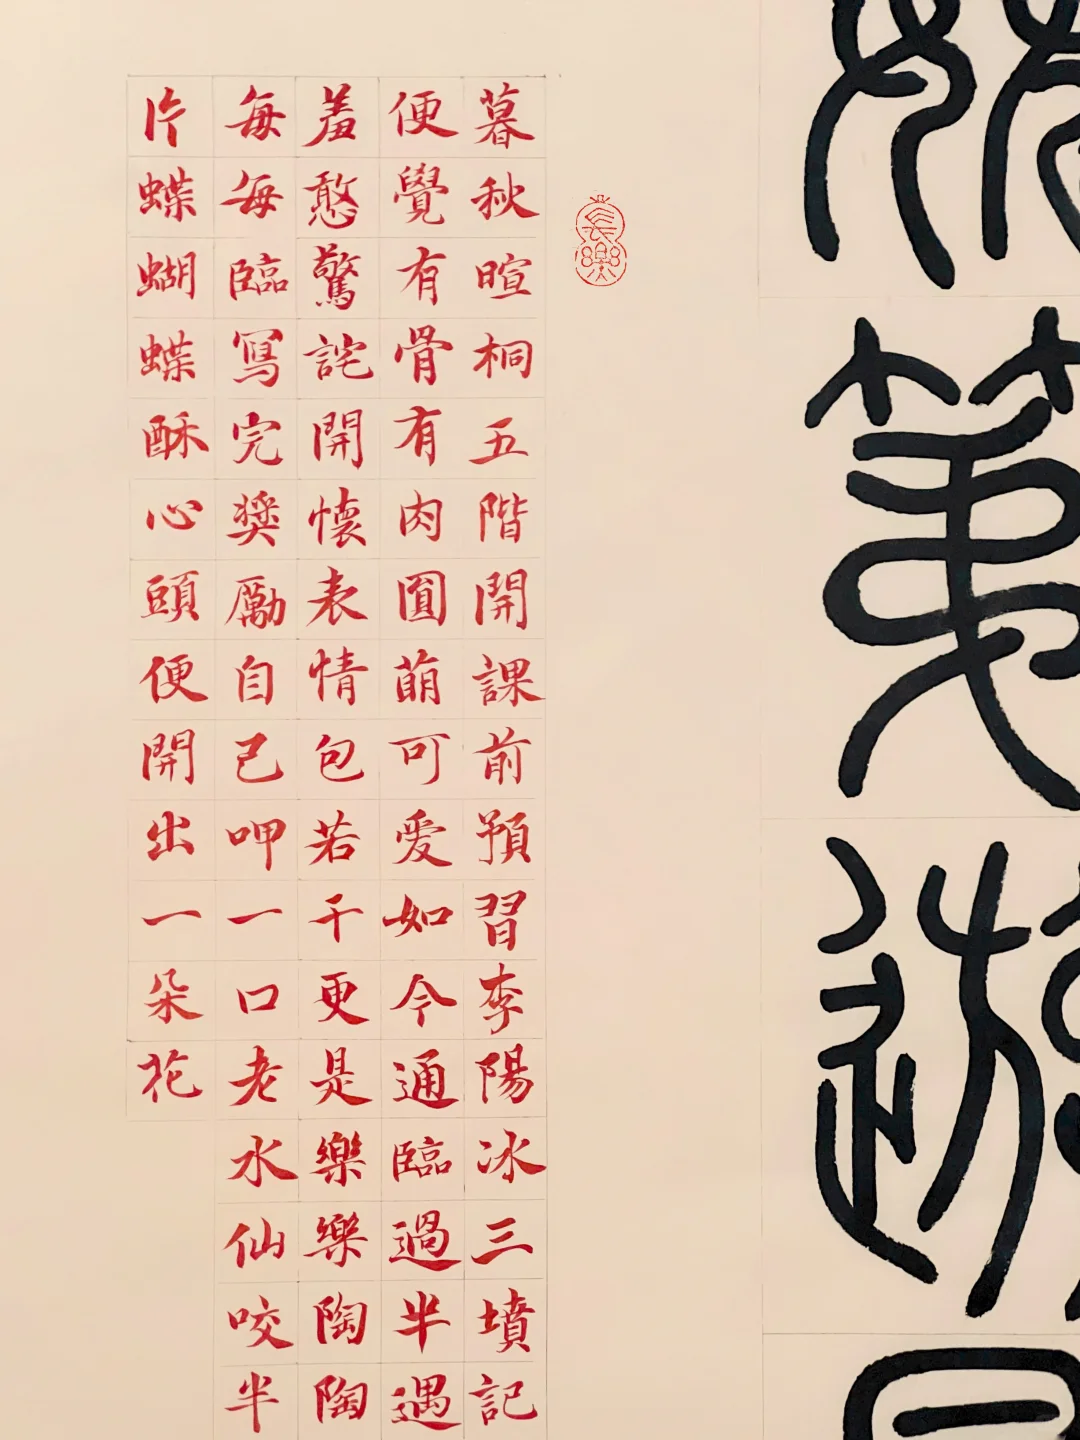 第遊
長樂
暮秋暄桐五階開課前預習李陽冰三墳記
便覺有骨有肉圓萌可愛如今通臨過半遇
羞憨驚詫開懷表情包若干更是樂樂陶陶
每每臨寫完獎勵自己呷一口老水仙咬半
片蝶蝴蝶酥心頭便開出一朵花